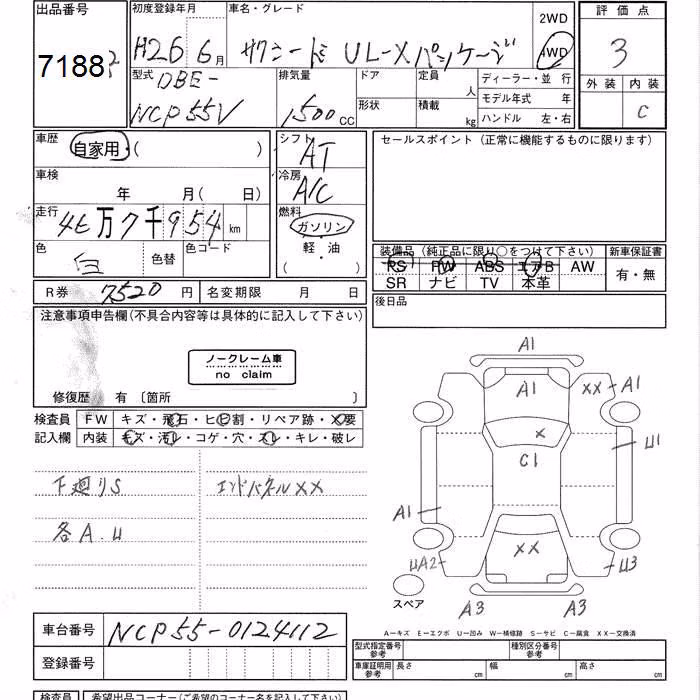 出品番号 初度登録年月 車名・グレード 2WD 評価点
7188 H26 6月 サクシード UL-Xパッケージ 4WD 3
型式 DBE- 排気量 ドア 定員 人 ディーラー・並 行 外装 内装
NCP55V 1,500CC 形状 積載 kg モデル年式 年 C
ハンドル 左・右
車歴 自家用・( ) シフト AT セールスポイント(正常に機能するものに限ります)
車検 年 月( 日) 冷房 A/C
走行 万7千954km 燃料 ガソリン
色 白 色替 色コード 軽・油 装備品(純正品に限り○をつけて下さい) 新車保証書
( ) PS PW ABS エアB AW 有・無
R券 7520円 名変期限 月 日 SR ナビ TV 本革
注意事項申告欄(不具合内容等は具体的に記入して下さい) 後日品
ノークレーム車
no claim
修復歴 有 〔箇所 〕
検査員 FW キズ・飛石・ヒビ割・リペア跡・X要
記入欄 内装 キズ・汚レ・コゲ・穴・スレ・キレ・破レ
下廻りS エンドパネルXX
各A.U
A1
A1
XX A1
X
U1
C1
A1
XX
UA2 U3
スペア
A3 A3
A-キズ E-エクボ U-凹み W-補修跡 S-サビ C-腐食 XX-交換済
車台番号 NCP55-0124112 型式指定番号 参考 種別区分番号 参考
登録番号 車庫証明用 参考 長さ cm 幅 cm 高さ cm
検査員 希望出品コーナー(ご希望のコーナー名を記入して下さい)